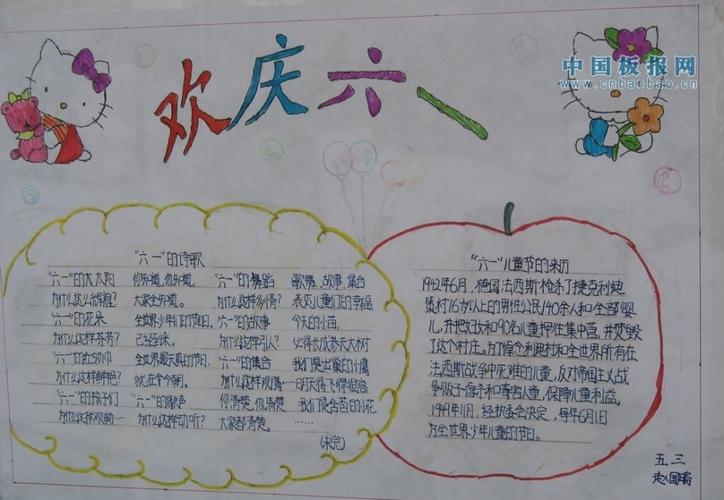 欢庆六一
中国板报网
www.cnbanbao.cn
“六一”的诗歌
“六一”的太阳
为什么这么辉煌?
“六一”的花朵
为什么这样芬芳?
“六一”的红领巾
为什么这样鲜艳?
“六一”的孩子们
为什么这样欢
你知道,他知道,
大家全知道。
全世界少年们的节日,
已经来
全世界最天真的节日,
就在今朝。
“六一”的歌声
为什么这样动听?
“六一”的舞蹈
为什么这样多情?
“六一”的故事
为什么这样引人?
“六一”的集会
为什么这样欢腾
你清楚,他清楚
大家都清楚
歌舞、故事、集会
表现儿童们的幸福
今天的小苗,
必将长成参天大树
我们是出巢的小鹰
明天将飞得很高
我们是含苞的小花
……
(未完)
“六一”儿童节的来历
1942年6月,德国法西斯枪杀了捷克利迪
策村16岁以上的男性公民140余人和全部婴
儿,并把妇女和90名儿童押往集中营,并焚毁
了这个村庄。为了悼念利迪村和全世界所有在
法西斯战争中死难的儿童,反对帝国主义战
争贩子虐杀和毒害儿童,保障儿童利益,
1949年11月,经执委会决定,每年6月1日
为全世界少年儿童的节日。
五三
赵国